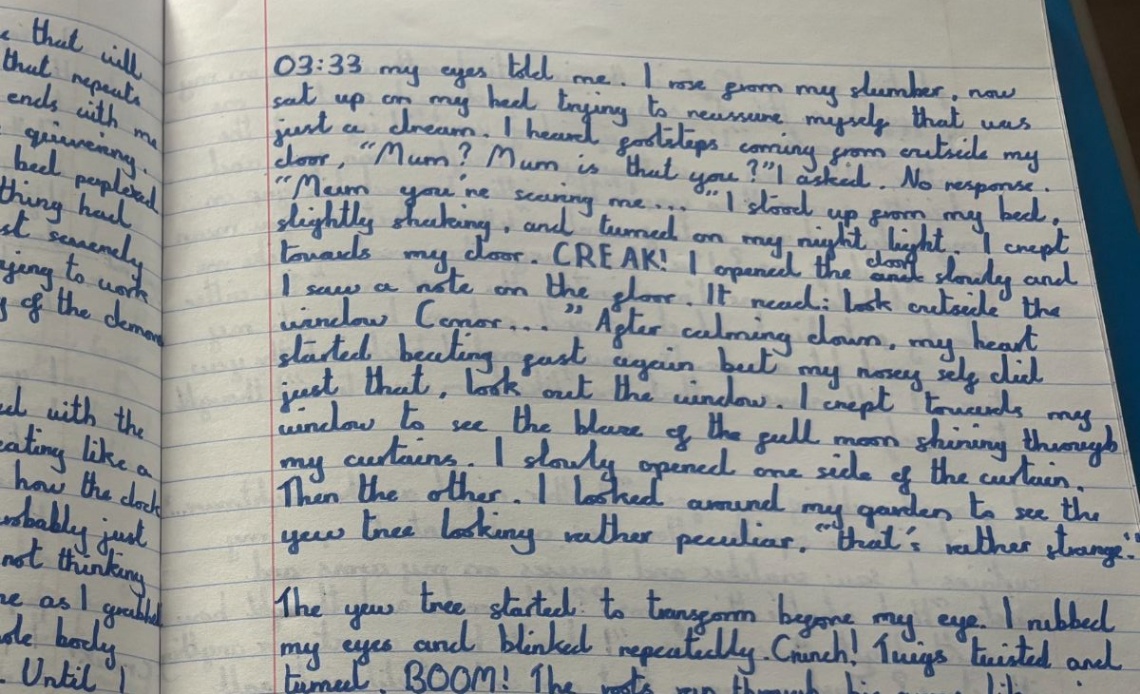 that will
that repeats
ends with me
quivering.
bed perplexed
thing had
serenely
trying to work
of the demon
with the
beating like a
how the clock
probably just
not thinking
me as I grabbed
body
. Until I
03:33 my eyes told me. I rose from my slumber, now
sat up on my bed trying to reassure myself that was
just a dream. I heard footsteps coming from outside my
door, "Mum? Mum is that you?" I asked. No response.
"Mum you're scaring me..." I stood up from my bed,
slightly shaking, and turned on my night light. I crept
towards my door. CREAK! I opened the door slowly and
I saw a note on the floor. It read: look outside the
window Conor..." After calming down, my heart
started beating fast again but my nosey self did
just that, look out the window. I crept towards my
window to see the blare of the full moon shining through
my curtains. I slowly opened one side of the curtain.
Then the other. I looked around my garden to see the
yew tree looking rather peculiar. "that's rather strange."
The yew tree started to transform before my eye. I rubbed
my eyes and blinked repeatedly. Crunch! Twigs twisted and
turned. BOOM! The roots ran through his